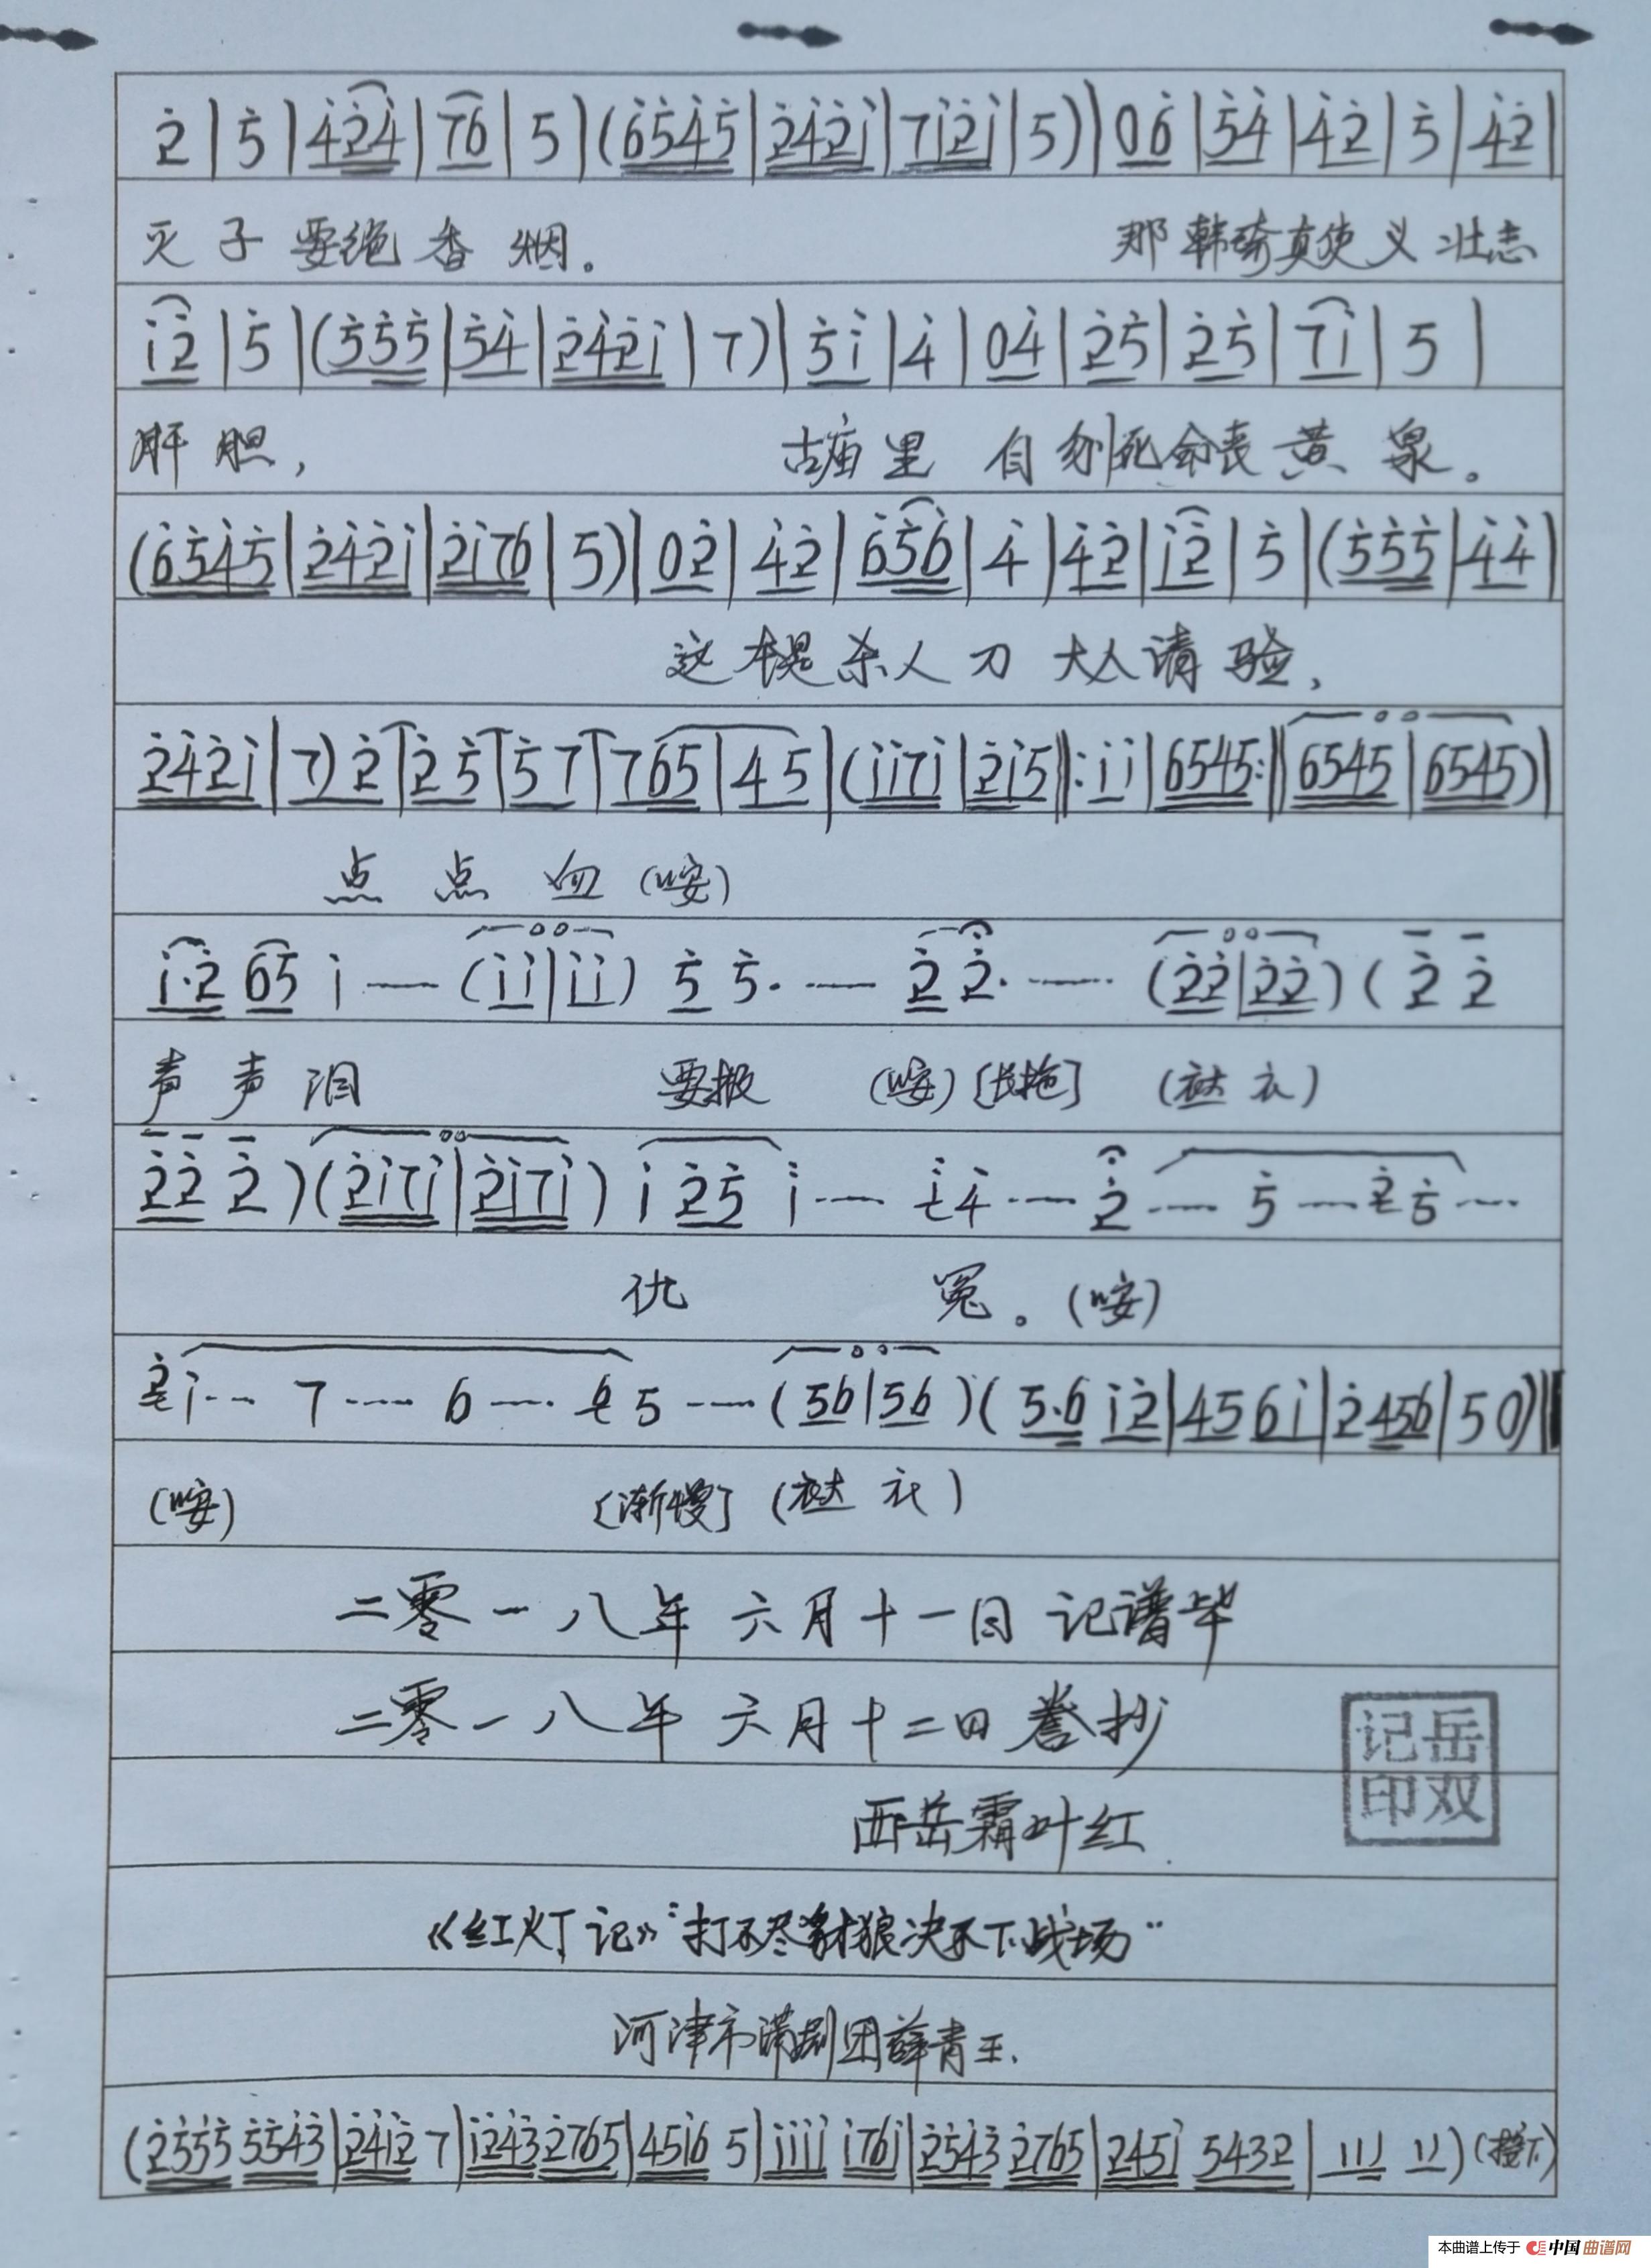 2̇ | 5̇ | 4̇2̇4̇ | 76 | 5 | (6̇5̇4̇5̇ | 2̇4̇2̇1̇ | 71̇2̇1̇ | 5) | 06̇ | 5̇4̇ | 4̇2̇ | 5̇ | 4̇2̇ |
灭子要绝香烟。 那韩琦真使义壮志
1̇2̇ | 5̇ | (5̇5̇5̇ | 5̇4̇ | 2̇4̇2̇1̇ | 7) | 5̇1̇ | 4̇ | 04̇ | 2̇5̇ | 2̇5̇ | 71̇ | 5 |
肝胆, 古庙里 自刎死命丧黄泉。
(6̇5̇4̇5̇ | 2̇4̇2̇1̇ | 2̇1̇76 | 5) | 02̇ | 4̇2̇ | 6̇5̇6̇ | 4̇ | 4̇2̇ | 1̇2̇ | 5̇ | (5̇5̇5̇ | 4̇4̇ |
这本是杀人刀 大人请验,
2̇4̇2̇1̇ | 7) 2̇ | 2̇5̇ | 5̇7 | 765 | 45 | (1̇1̇71̇ | 2̇1̇5 ‖: 1̇1̇ | 6545 :‖ 6545 | 6545) |
点 点 血 (唉)
1̇·2̇ 65 1̇ — (1̇1̇ | 1̇1̇) 5̇ 5̇· — 2̇ 2̇· — (2̇2̇ | 2̇2̇) (2̇ 2̇
声 声 泪 要报 (唉) [长拖] (哒 衣)
2̇2̇ 2̇) (2̇1̇71̇ | 2̇1̇71̇) 1̇ 2̇5̇ 1̇ — 4̇ — 2̇ — 5̇ — 5̇ —
仇 冤。(唉)
1̇ — 7 — 6 — 5 — (56 | 56) (5·6 1̇2̇ | 45 61̇ | 2̇ 456 | 5 0) ‖
(唉) [渐慢] (哒 衣)
二零一八年六月十一日 记谱毕
二零一八年六月十二日 誊抄
西岳霜叶红
记岳
印双
《红灯记》"打不尽豺狼决不下战场"
河津市蒲剧团薛青玉.
(2̇5̇5̇5̇ 5̇5̇4̇3̇ | 2̇4̇1̇2̇ 7 | 1̇2̇4̇3̇ 2̇765 | 451̇6 5 | 1̇1̇1̇1̇ 1̇761̇ | 2̇5̇4̇3̇ 2̇765 | 2451̇ 5432 | 111 11) (接下)
本曲谱上传于 中国曲谱网